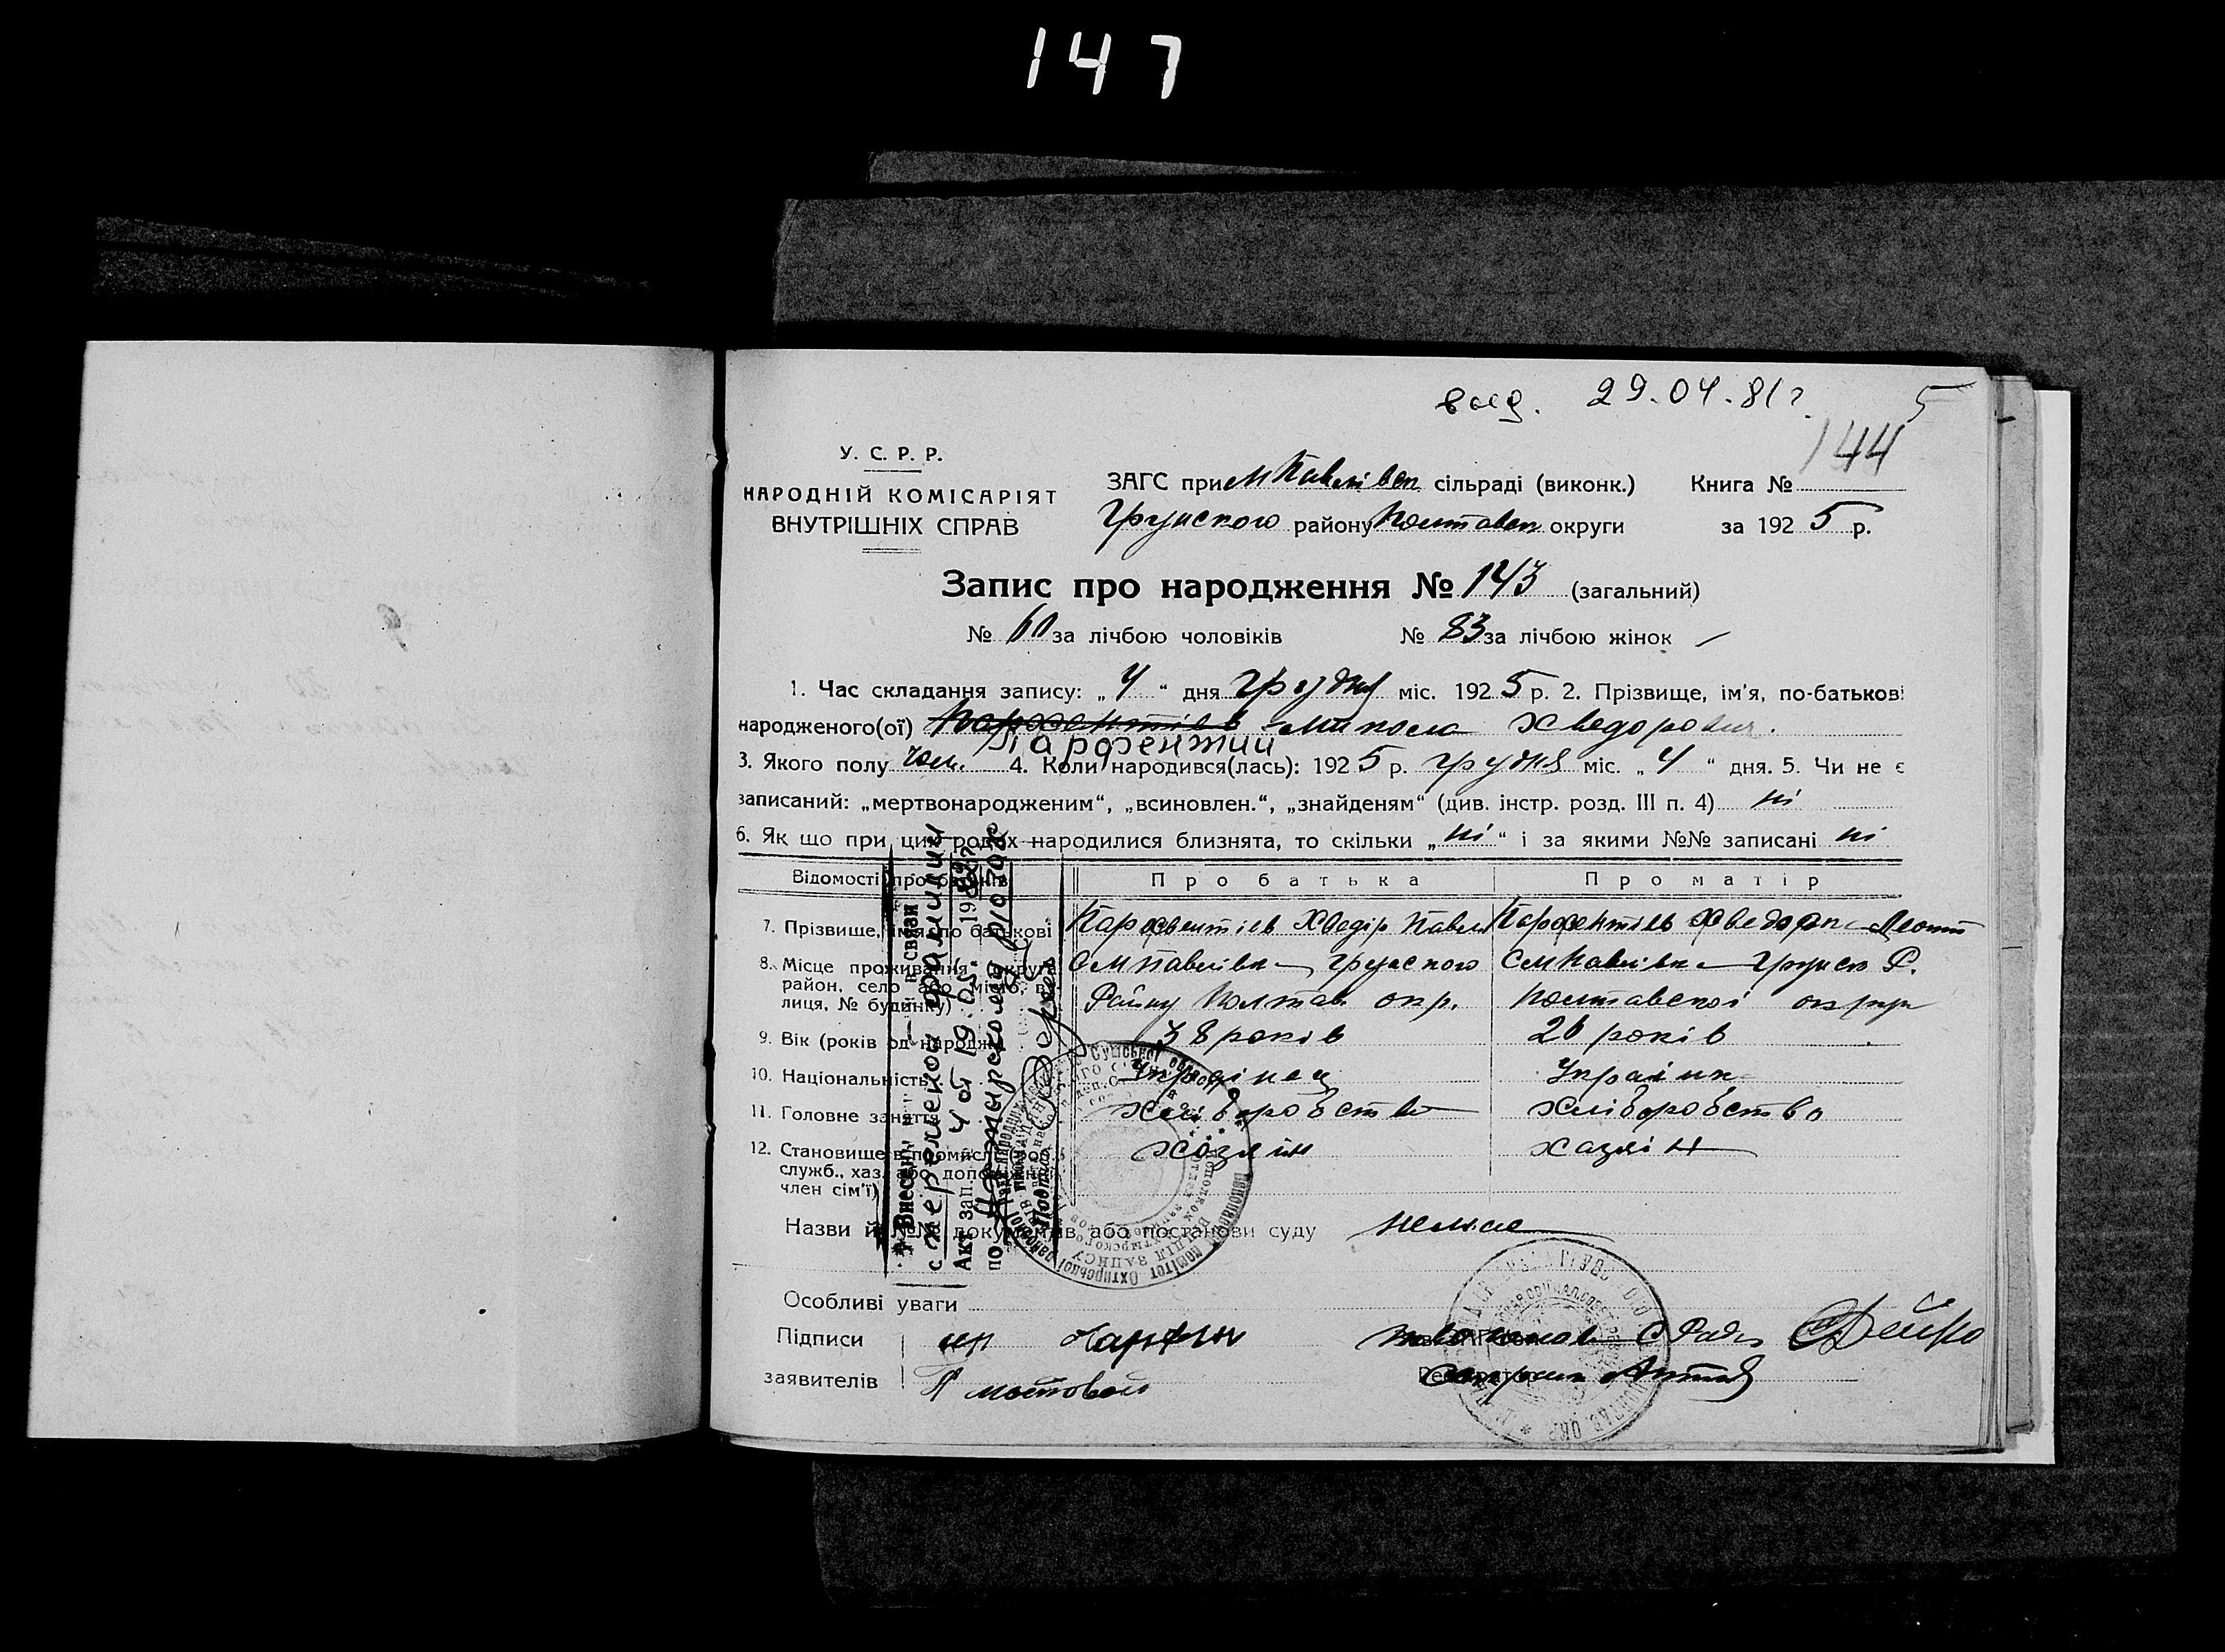 147
выд. 29.04.81г. 5
144
У. С. Р. Р.
НАРОДНІЙ КОМІСАРІЯТ
ВНУТРІШНІХ СПРАВ
ЗАГС при МПавлівск сільраді (виконк.) Книга №
Грунского району Полтавск округи за 1925 р.
Запис про народження № 143 (загальний)
№ 60 за лічбою чоловіків № 83 за лічбою жінок
1. Час складання запису: „4“ дня грудня міс. 1925 р. 2. Прізвище, ім'я, по-батькові
народженого(ої) Парфентієв Микола Хведорович.
Парфентий
3. Якого полу чол. 4. Коли народився(лась): 1925 р. грудня міс. „4“ дня. 5. Чи не є
записаний: „мертвонародженим“, „всиновлен.“, „знайденям“ (цив. інстр. розд. III п. 4) ні
6. Як що при цих родах народилися близнята, то скільки „ні“ і за якими №№ записані ні
Відомості про батьків Про батька Про матір
7. Прізвище, імя, по батькові Парфентієв Хведір Павл Парфентієв
8. Місце проживання (округа, район, село або місто, вулиця, № будинку) С МПавлівка Грунского Району Полтав. окр. С МПавлівка Грунск Р. Полтавскої округи
9. Вік (років од народж.) 38 років 26 років
10. Національність Українец Українк
11. Головне заняття хліборобство хліборобство
12. Становище в промислі (роб., служб., хаз. або допоміжний член сім'ї) хозяін хазяін
Назви й №№ документів або постанови суду немае
Особливі уваги
Підписи
заявителів П мостовой
Внесены в связи
с переменой фамилии
Акт зап. 4 от 19.05. 1982г
по Ахтырскому р/о загс
Подпись